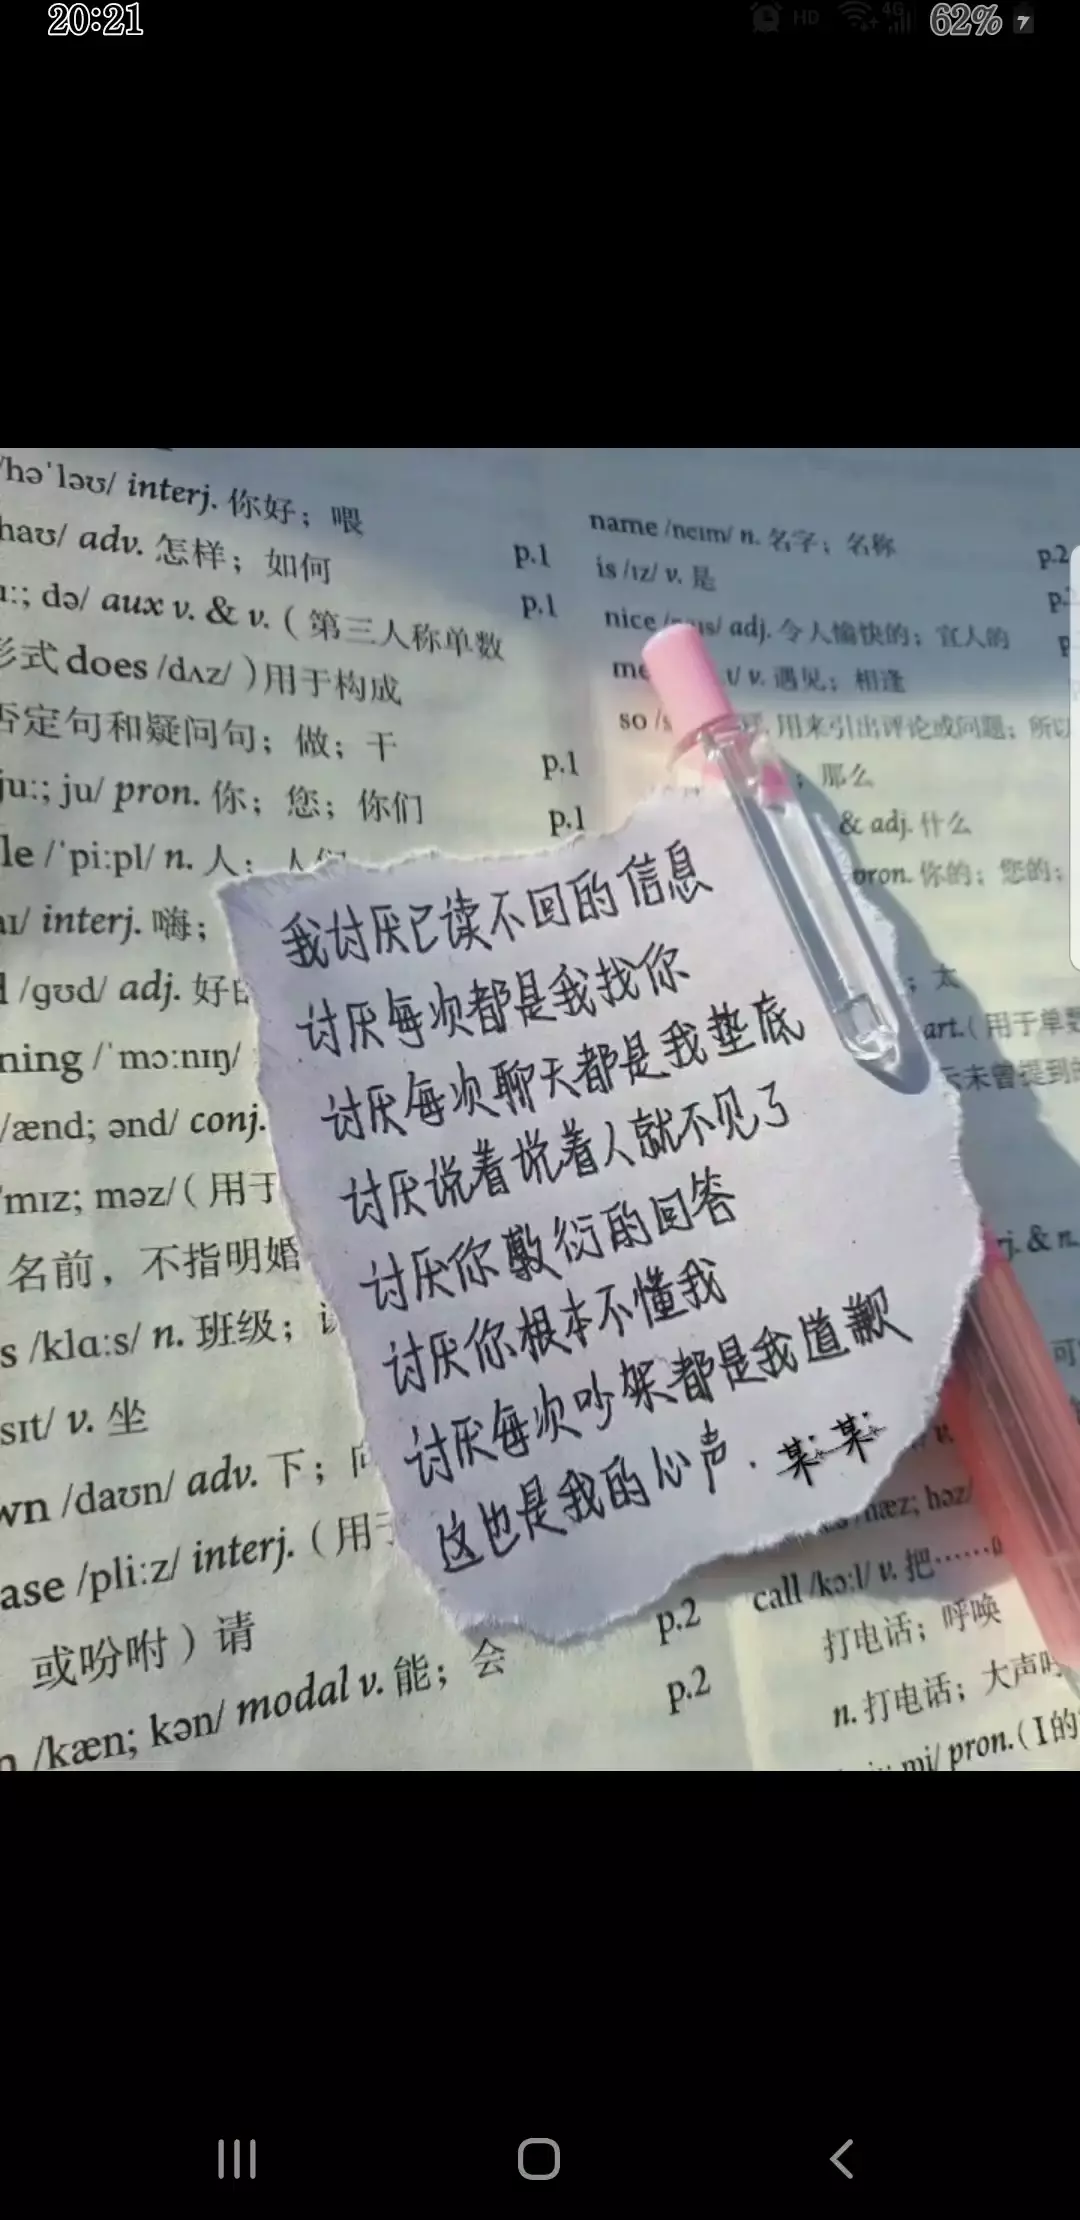 20:21
HD 4G 62%
/hə'ləʊ/ interj. 你好；喂
haʊ/ adv. 怎样；如何 p.1
də/ aux v. & v.（第三人称单数 p.1
形式 does /dʌz/ ）用于构成
否定句和疑问句；做；干
ju:; ju/ pron. 你；您；你们 p.1
le /'pi:pl/ n. 人； p.1
interj. 嗨；
/gʊd/ adj.
ning /'mɔ:nɪŋ/
/ænd; ənd/ conj.
mɪz; məz/（用于
名前，不指明婚
s /klɑ:s/ n. 班级；
sɪt/ v. 坐
wn /daʊn/ adv. 下；
ase /pli:z/ interj.（用于
或吩咐）请 p.2
/kæn; kən/ modal v. 能；会 p.2
name /neɪm/ n. 名字；名称 p.2
is /ɪz/ v. 是
nice adj. 令人愉快的；宜人的
v. 遇见；相逢
so 用来引出评论或问题；所以
；那么
& adj. 什么
pron. 你的；您的；
；太
art.（用于单数
未曾提到的
& n.
可
hæz; həz/
call /kɔ:l/ v. 把……
打电话；呼唤
n. 打电话；大声
pron.（I的
我讨厌已读不回的信息
讨厌每次都是我找你
讨厌每次聊天都是我垫底
讨厌说着说着人就不见了
讨厌你敷衍的回答
讨厌你根本不懂我
讨厌每次吵架都是我道歉
这也是我的心声．某某